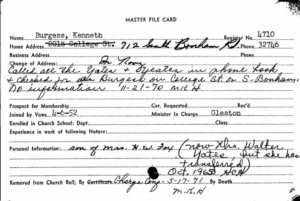 MASTER FILE CARD
Name Burgess, Kenneth Register No. 4710
Home Address 2015 College St. 712 South Bonham, Phone 32746
Business Address Phone
Change of Address: In Navy
Called all the Yates & Yeates in phone book
& checked for Burgess on College St. or S. Bonham.
No information 11-21-70 MKH
Prospect for Membership Cor. Requested Rec'd
Joined by Vows. 4-6-52 Minister In Charge Gleaton
Enrolled in Church School: Dept. Class
Experience in work of following Nature:
Personal Information: son of Mrs. H.W. Fox (now Mrs. Walter
Yates, but she has
transferred)
Oct. 1965
Removed from Church Roll; By Certificate Charge Conf. 5-17-71 By Death